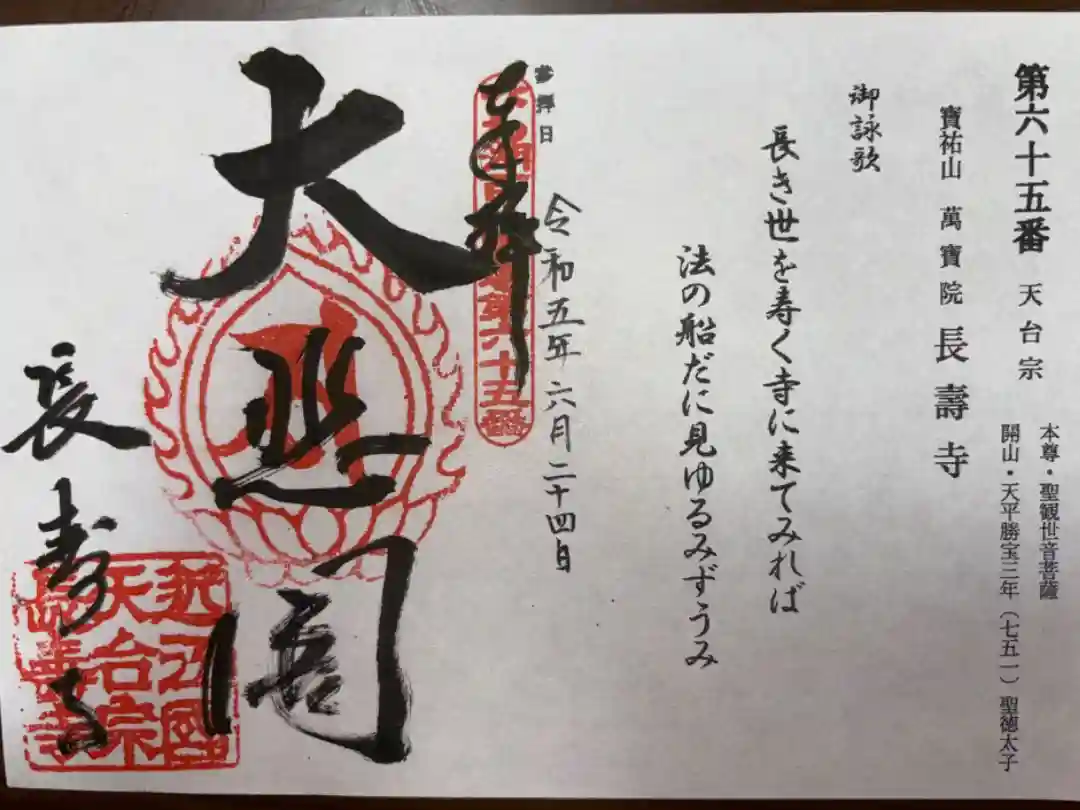 第六十五番 天台宗
本尊・聖観世音菩薩
開山・天平勝宝三年（七五一） 聖徳太子
寶祐山 萬寶院 長壽寺
御詠歌
長き世を寿く寺に来てみれば
法の船だに見ゆるみずうみ
参拝日
令和五年六月二十四日
奉拝
第六十五番
大悲閣
長寿寺
近江國
天台宗
長寿寺